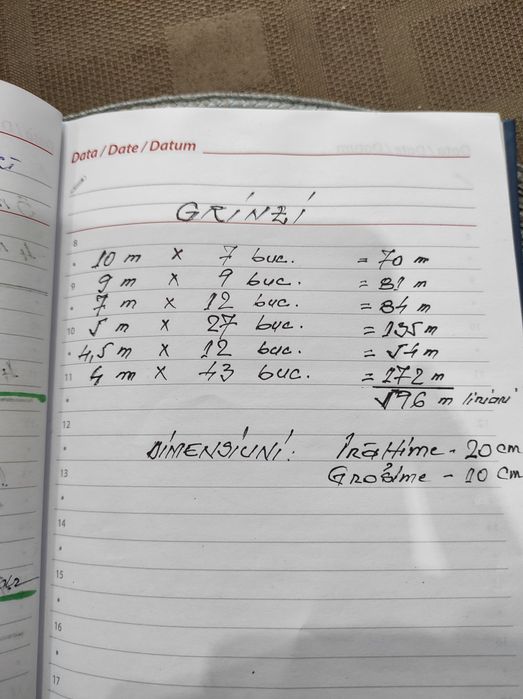 Data / Date / Datum
GRINZI
8
10 m x 7 buc. = 70 m
9 9 m x 9 buc. = 81 m
7 m x 12 buc. = 84 m
10 5 m x 27 buc. = 135 m
4,5 m x 12 buc. = 54 m
11 4 m x 43 buc. = 172 m
596 m liniari
12
DIMENSIUNI: Înălțime - 20 cm
13 Grosime - 10 cm
14
15
16
17